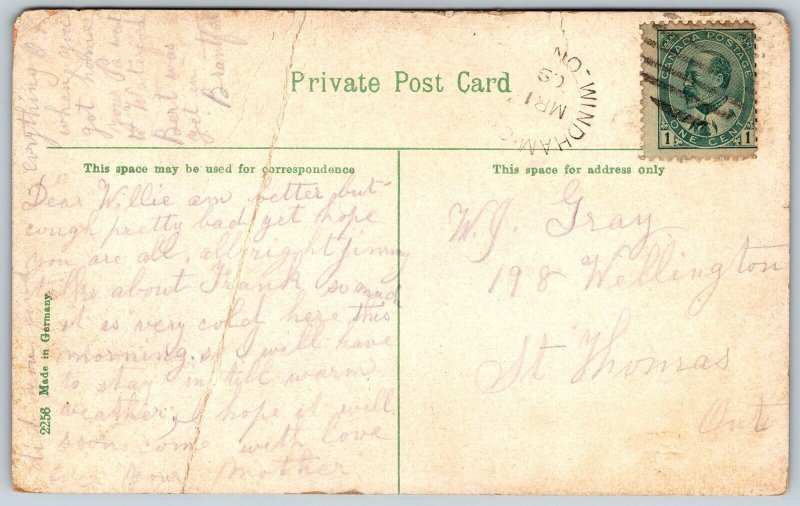 Private Post Card
CANADA POSTAGE
1 ONE CENT 1
WINDHAM
ON
MR 1
09
This space may be used for correspondence
This space for address only
Dear Willie am better but
cough pretty bad yet hope
you are all, all right Jimmy
talks about Frank so much
it is very cold here this
morning. so I will have
to stay in till warm
weather, I hope it will
soon come with love
ever your Mother
W. J. Gray
198 Wellington
St Thomas
Ont
2256 Made in Germany
when you
got home
your Pa was
Bert was
yet in